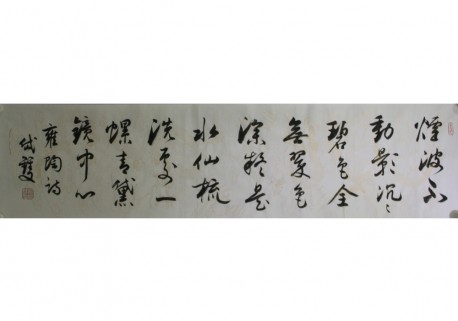 煙波不
動影沉々
碧色全
無翠色
深疑是
水仙梳
洗處一
螺青黛
鏡中心
雍陶詩